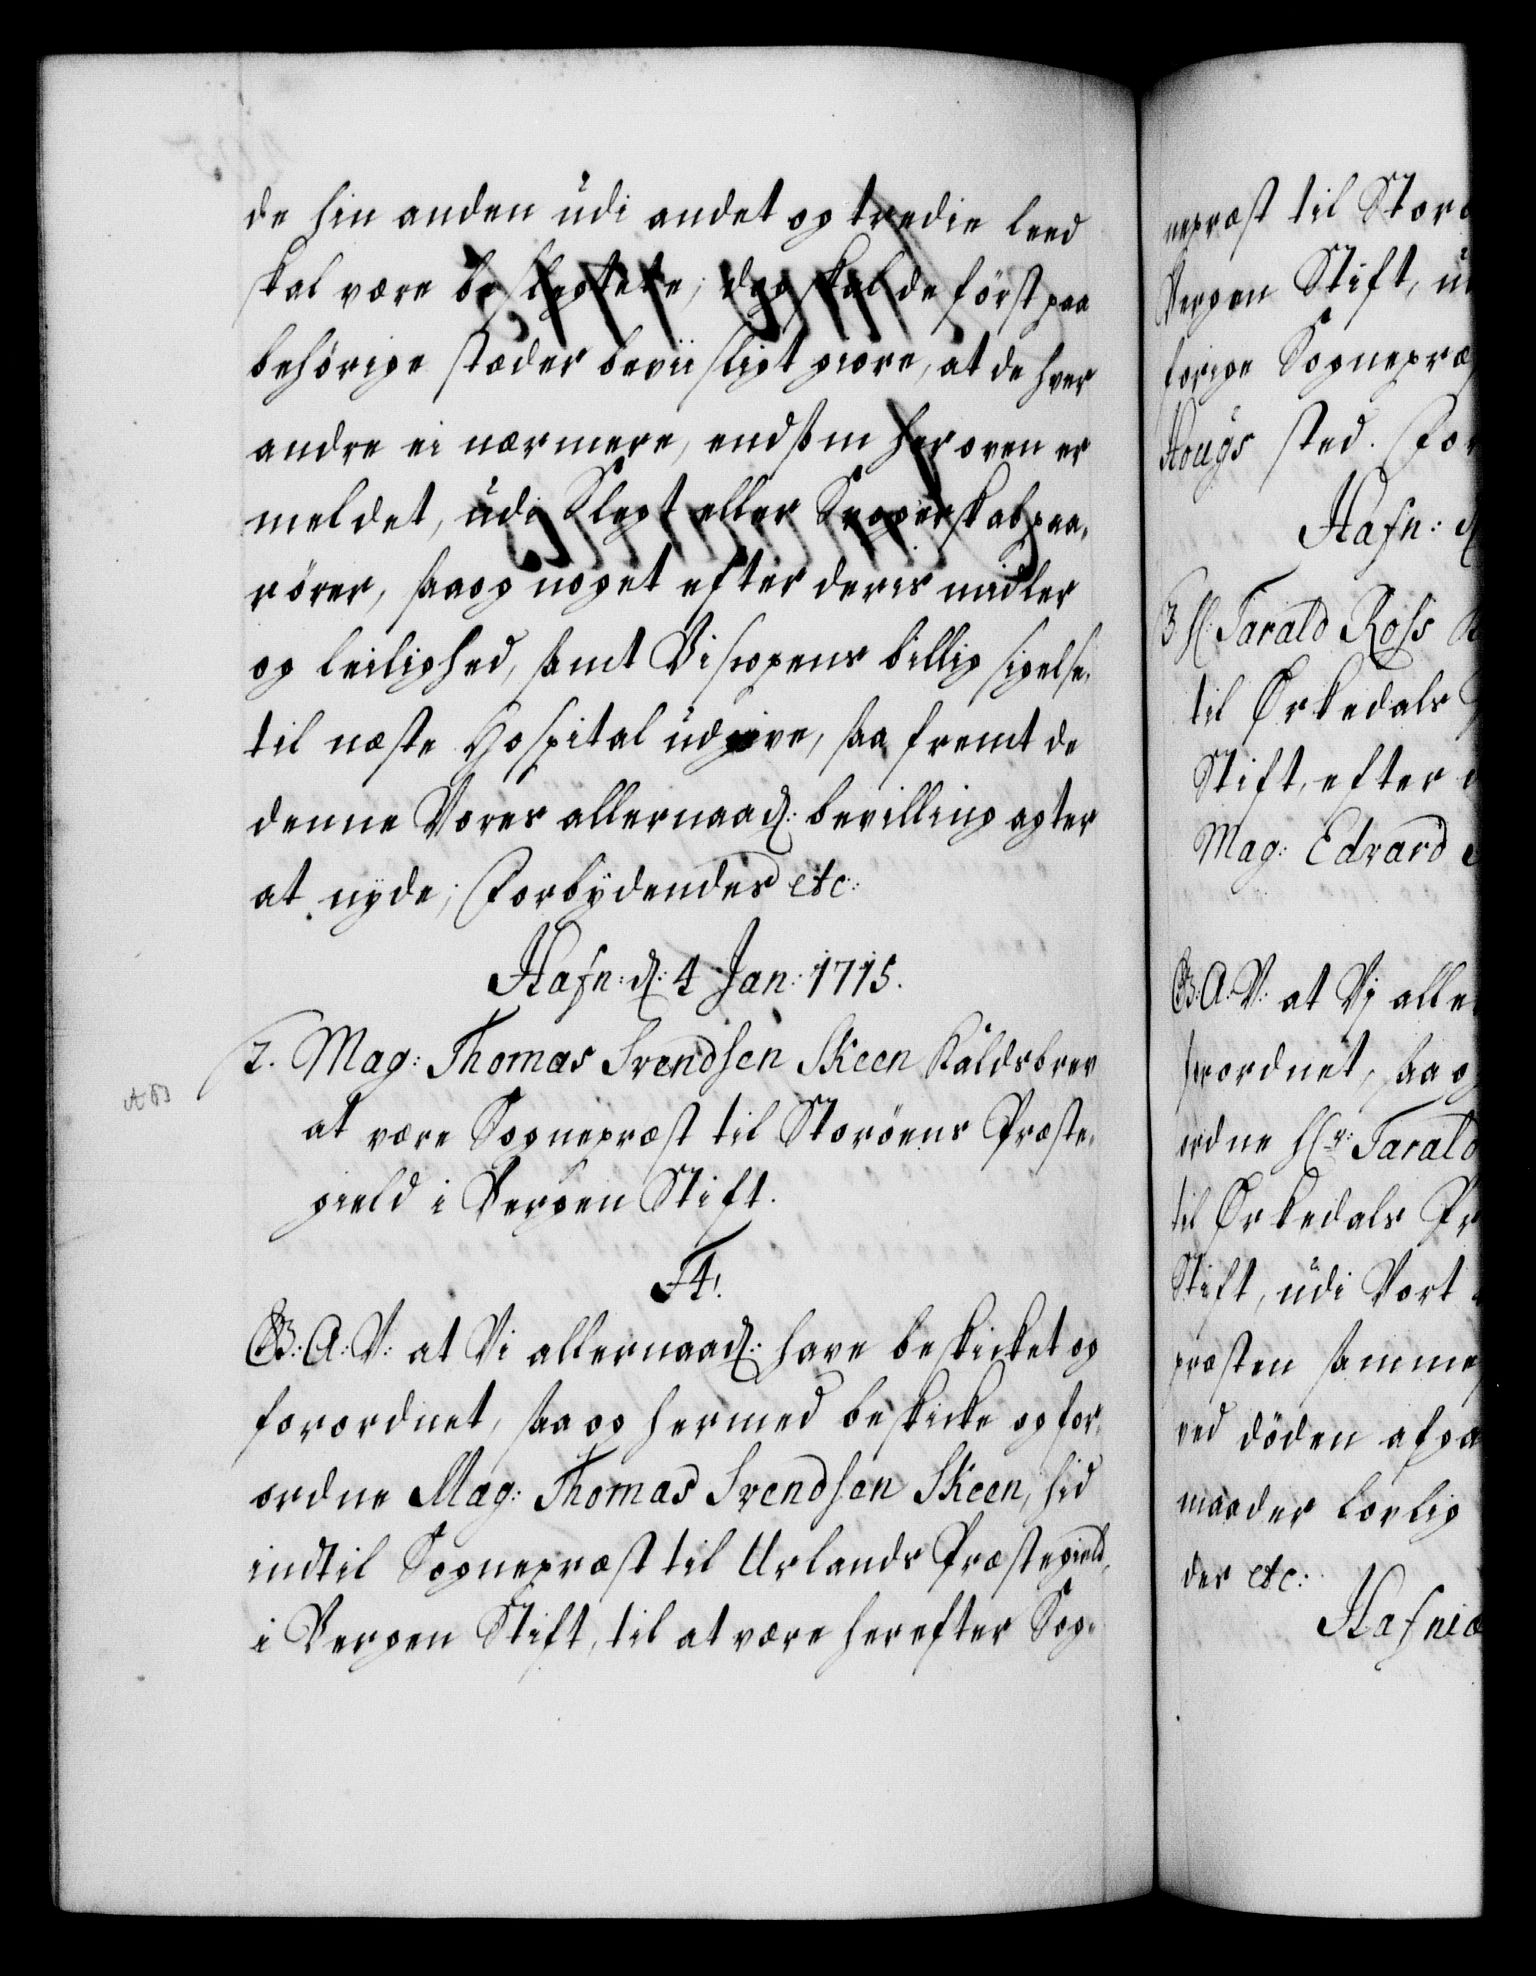 de hin anden udi andet og tredie leed
skal være beslegtede; dog skal de först paa
behörige stæder beviisligt giøre, at de hver
andre ei nærmere, end som her oven er
meldet, udi Slegt eller Svogerskab paa,
rörer, saa og noget efter deris midler
og leilighed, samt Biscopens billig sigelse,
til næste Hospital udgive, saa fremt de
denne Vores allernaad: bevilling agter
at nyde; Forbydendes etc:
Hafn: d: 4 Jan: 1715.
2. Mag: Thomas Svendsen Skeen Kaldsbrev
AB
at være Sognepræst til Storöens Præste,
gield i Bergen Stift.
F4!
G.A.V: at Vi allernaad: have beskicket og
forordnet, saa og hermed beskicke og for,
ordne Mag: Thomas Svendsen Skeen, hid
indtil Sognepræst til Urlands Præstegield,
i Bergen Stift, til at være herefter Sog,
nepræst til Storö
Bergen Stift, u
forige Sognepræ
Hougs sted. For
Hafn: d
3 H: Tarald Ross
til Ørkedals
Stift, efter
Mag: Edvard
G.A.V: at Vj alle
forordnet, saa og
ordne Hr: Tarald
til Ørkedals Pr
Stift, udi Vort
præsten samme
ved döden afga
maader lovlig
des etc:
Hafniæ